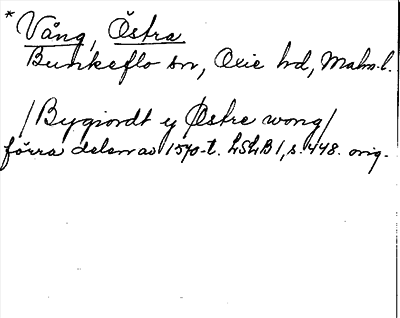 * Vång, Östra
Bunkeflo sn, Oxie hd, Malm.l.
/Bygiordt y Østre wong/
förra delen av 1570-t. LSLB 1, s. 448. orig.